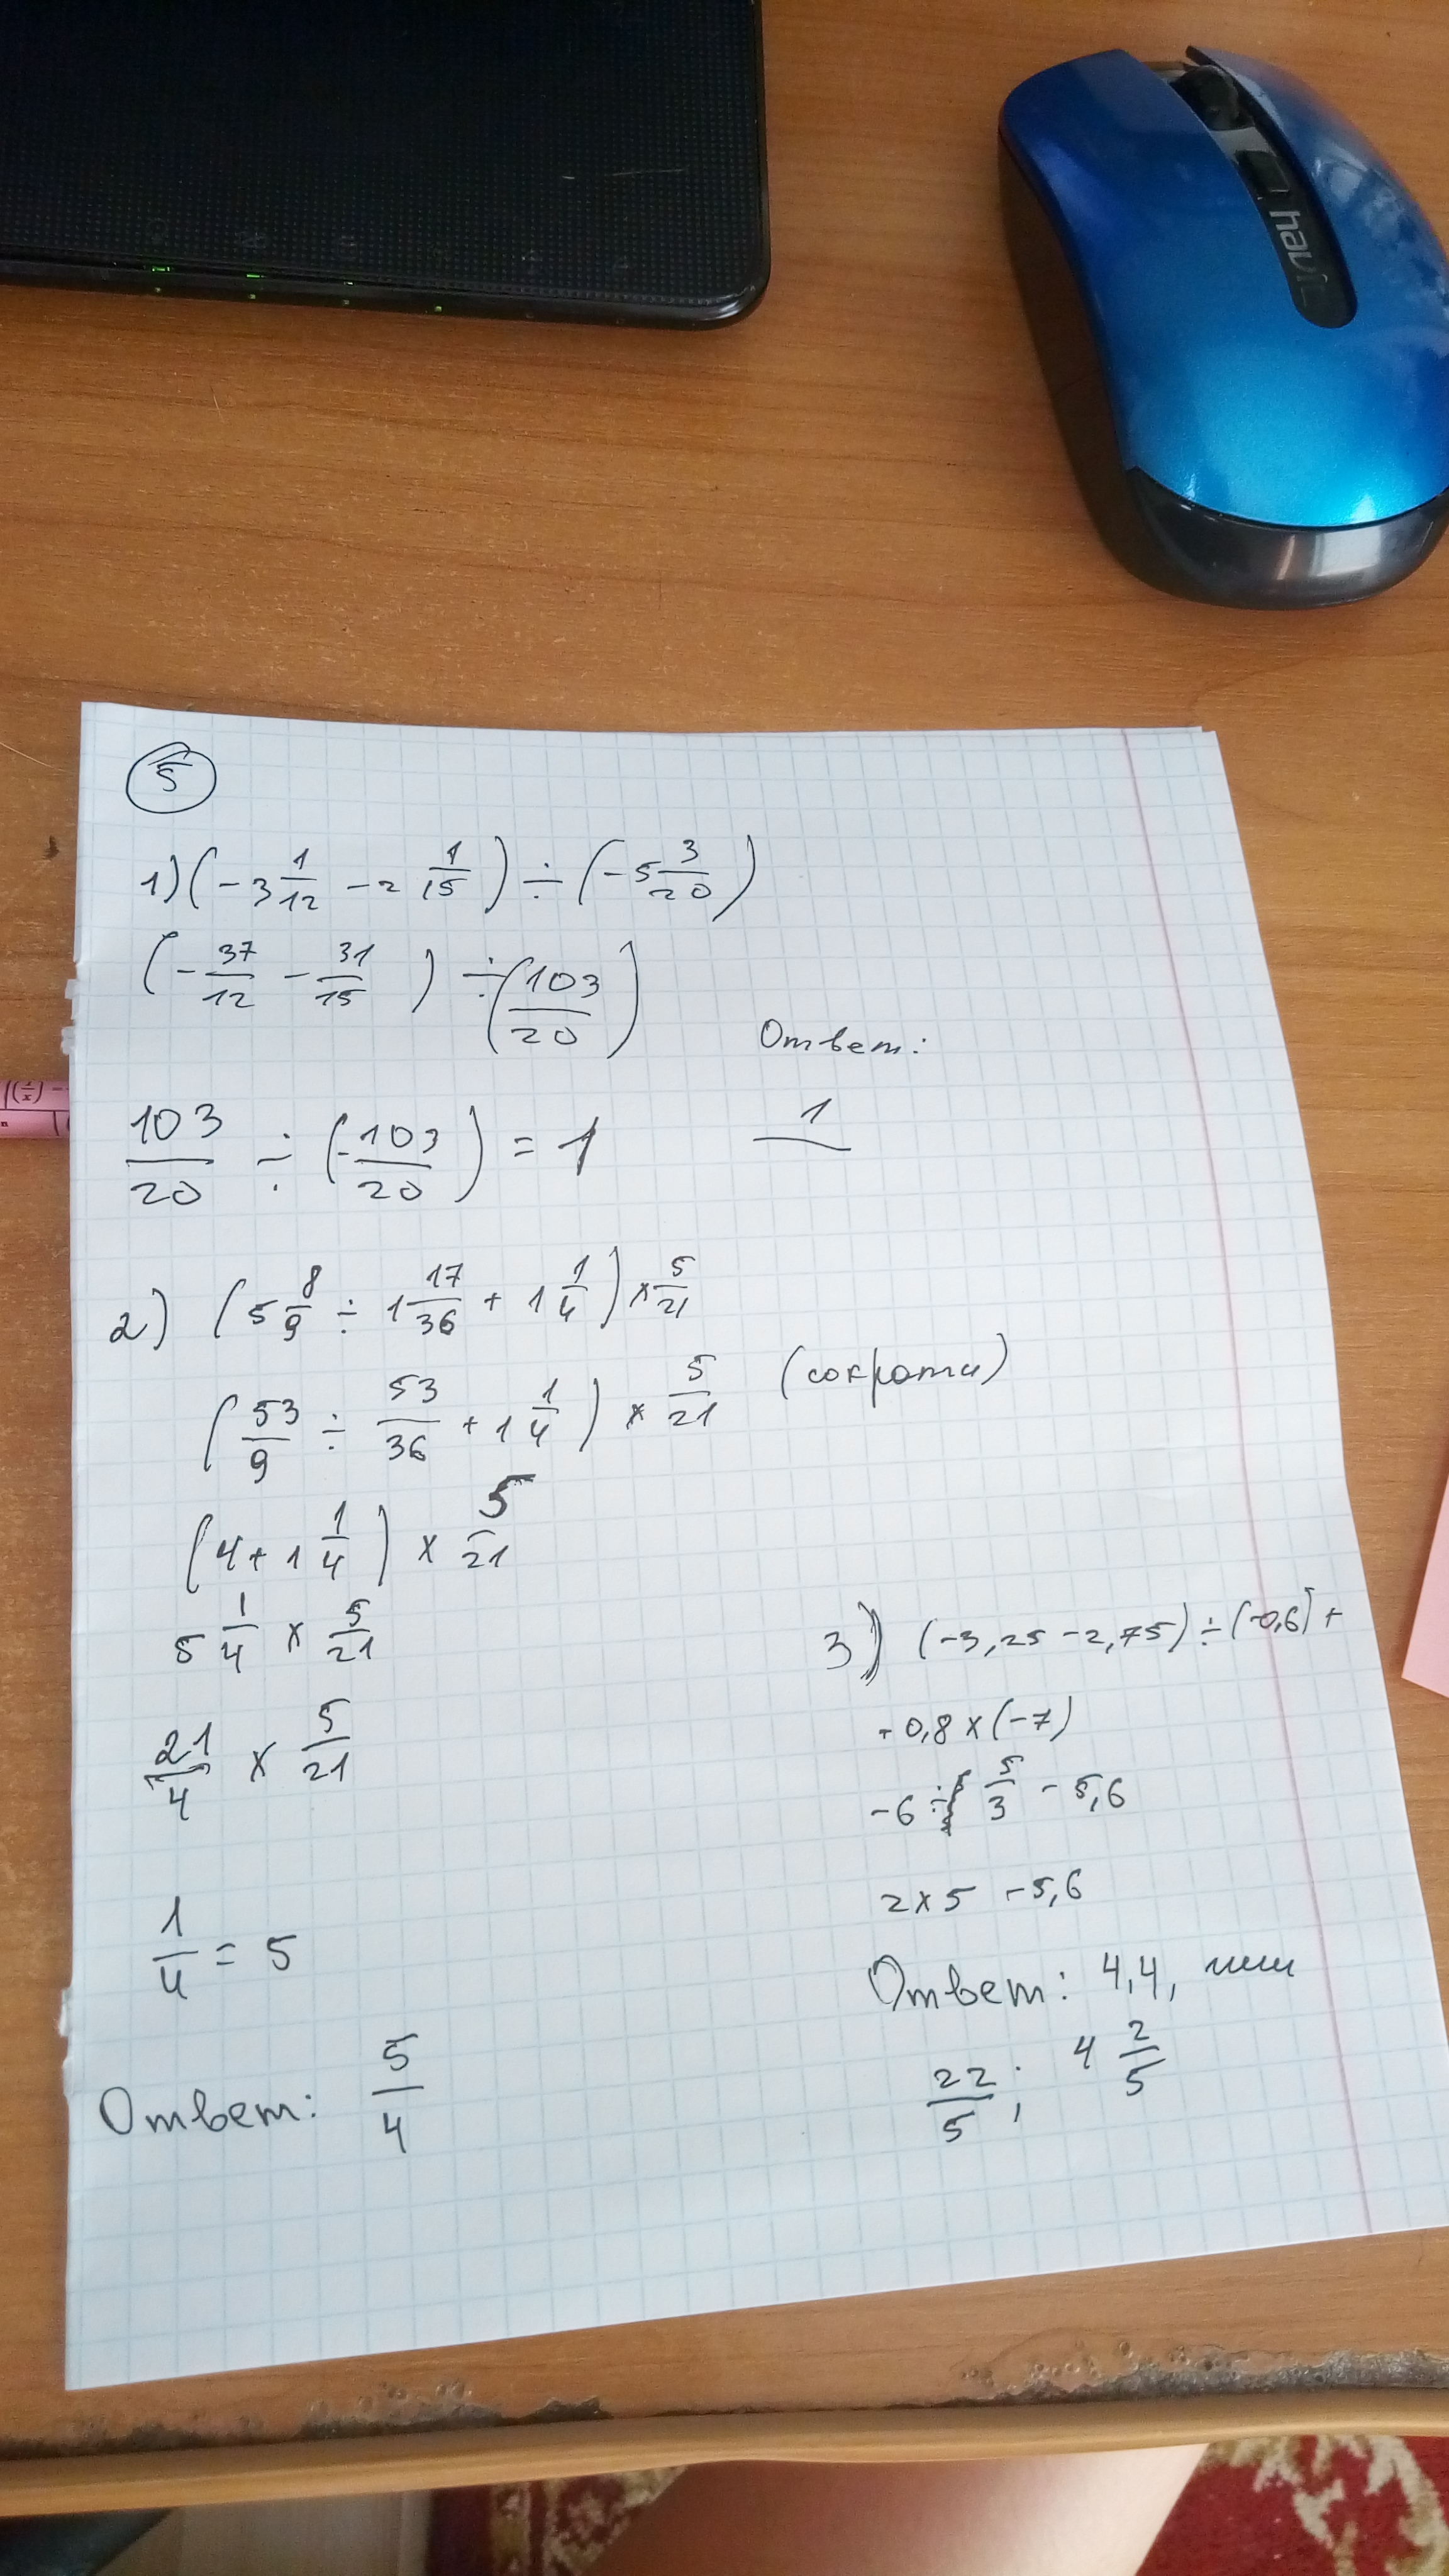 havit
5
1) (-3 1/12 - 2 1/15) ÷ (-5 3/20)
(- 37/12 - 31/15) ÷ (103/20)
103/20 ÷ (- 103/20) = 1
Ответ:
1
2) (5 8/9 ÷ 1 17/36 + 1 1/4) × 5/21
(53/9 ÷ 53/36 + 1 1/4) × 5/21 (сократи)
(4 + 1 1/4) × 5/21
5 1/4 × 5/21
21/4 × 5/21
1/4 = 5
Ответ: 5/4
3) (-3,25 - 2,75) ÷ (-0,6) +
+ 0,8 × (-7)
-6 ÷ 5/3 - 5,6
2 × 5 - 5,6
Ответ: 4,4, или
22/5; 4 2/5